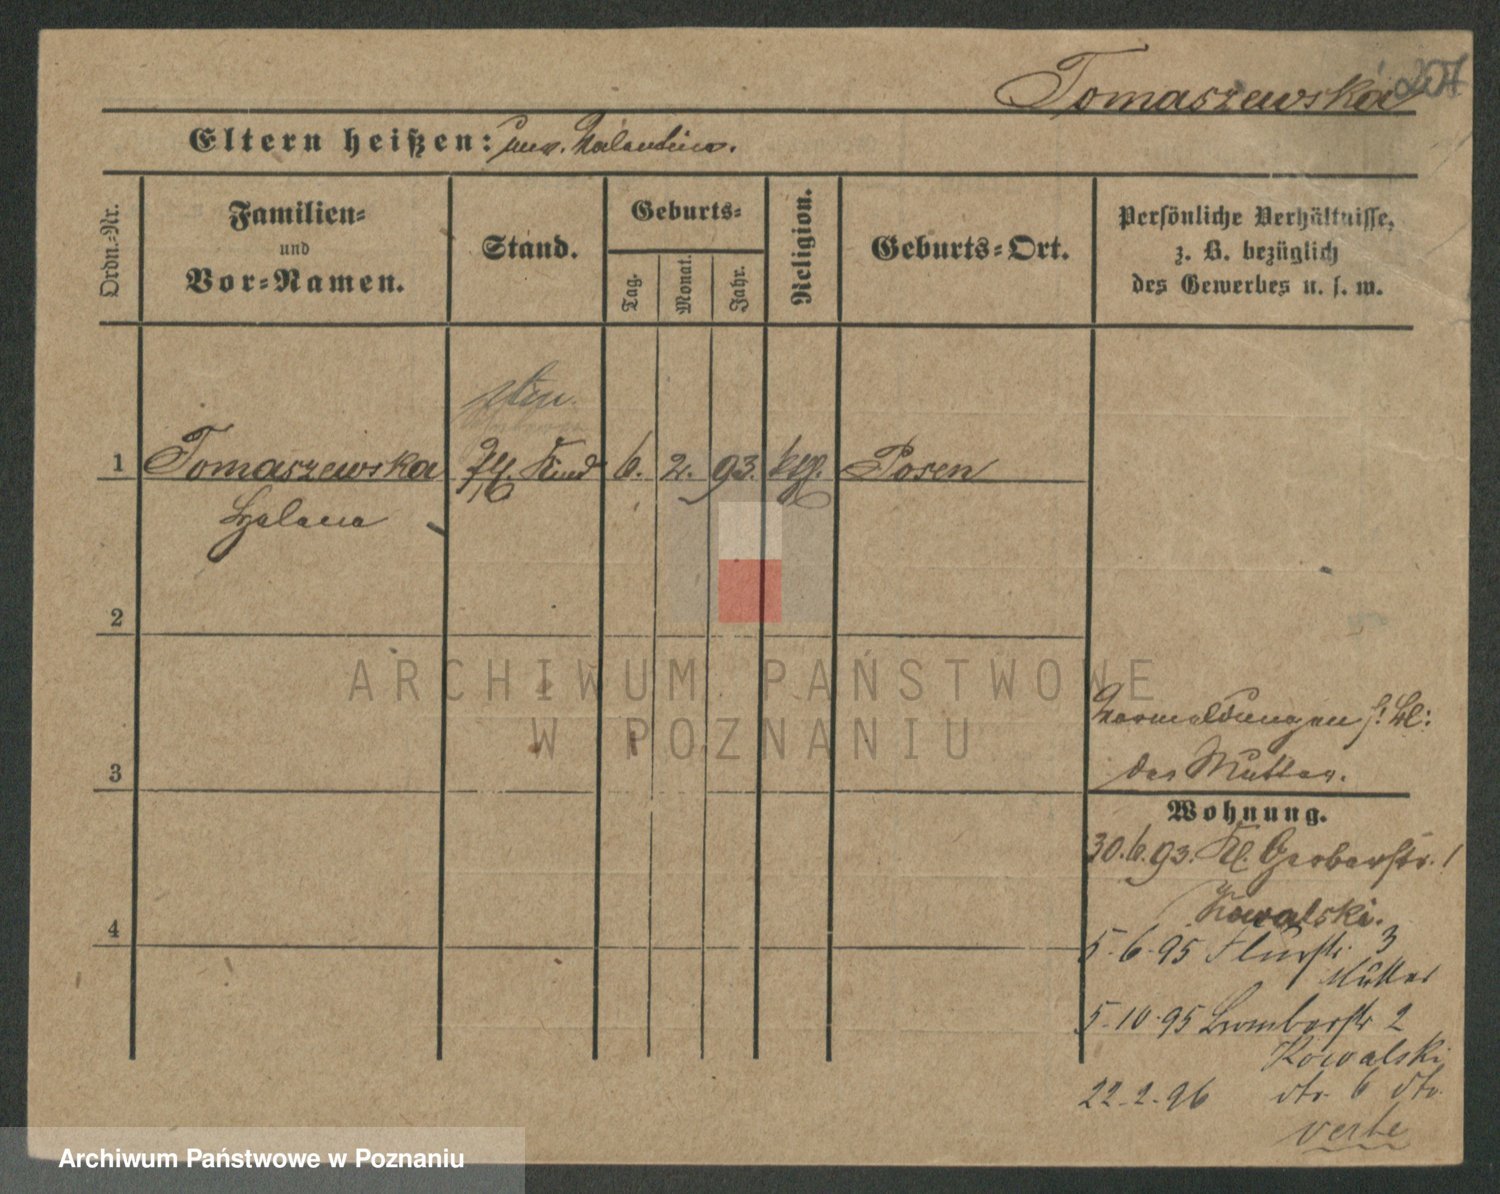 Tomaszewska
207
Eltern heißen: unv. Valentina.
Ordn.-Nr.
Familien-
und
Vor-Namen.
Stand.
Geburts-
Tag.
Monat.
Jahr.
Religion.
Geburts-Ort.
Persönliche Verhältnisse,
z. B. bezüglich
des Gewerbes u. s. w.
1 Tomaszewska Kind 6. 2. 93. Posen
Helena
2
3
4
ARCHIWUM PAŃSTWOWE
W POZNANIU
Vormeldungen s. Bl:
der Mutter.
Wohnung.
30.6.93. Kl. Gerberstr. 1
Kowalski.
5.6.95 Flurstr 3
Mutter
5.10.95 Bromberstr 2
Kowalski
22.2.96 dto. 6 dto.
Archiwum Państwowe w Poznaniu